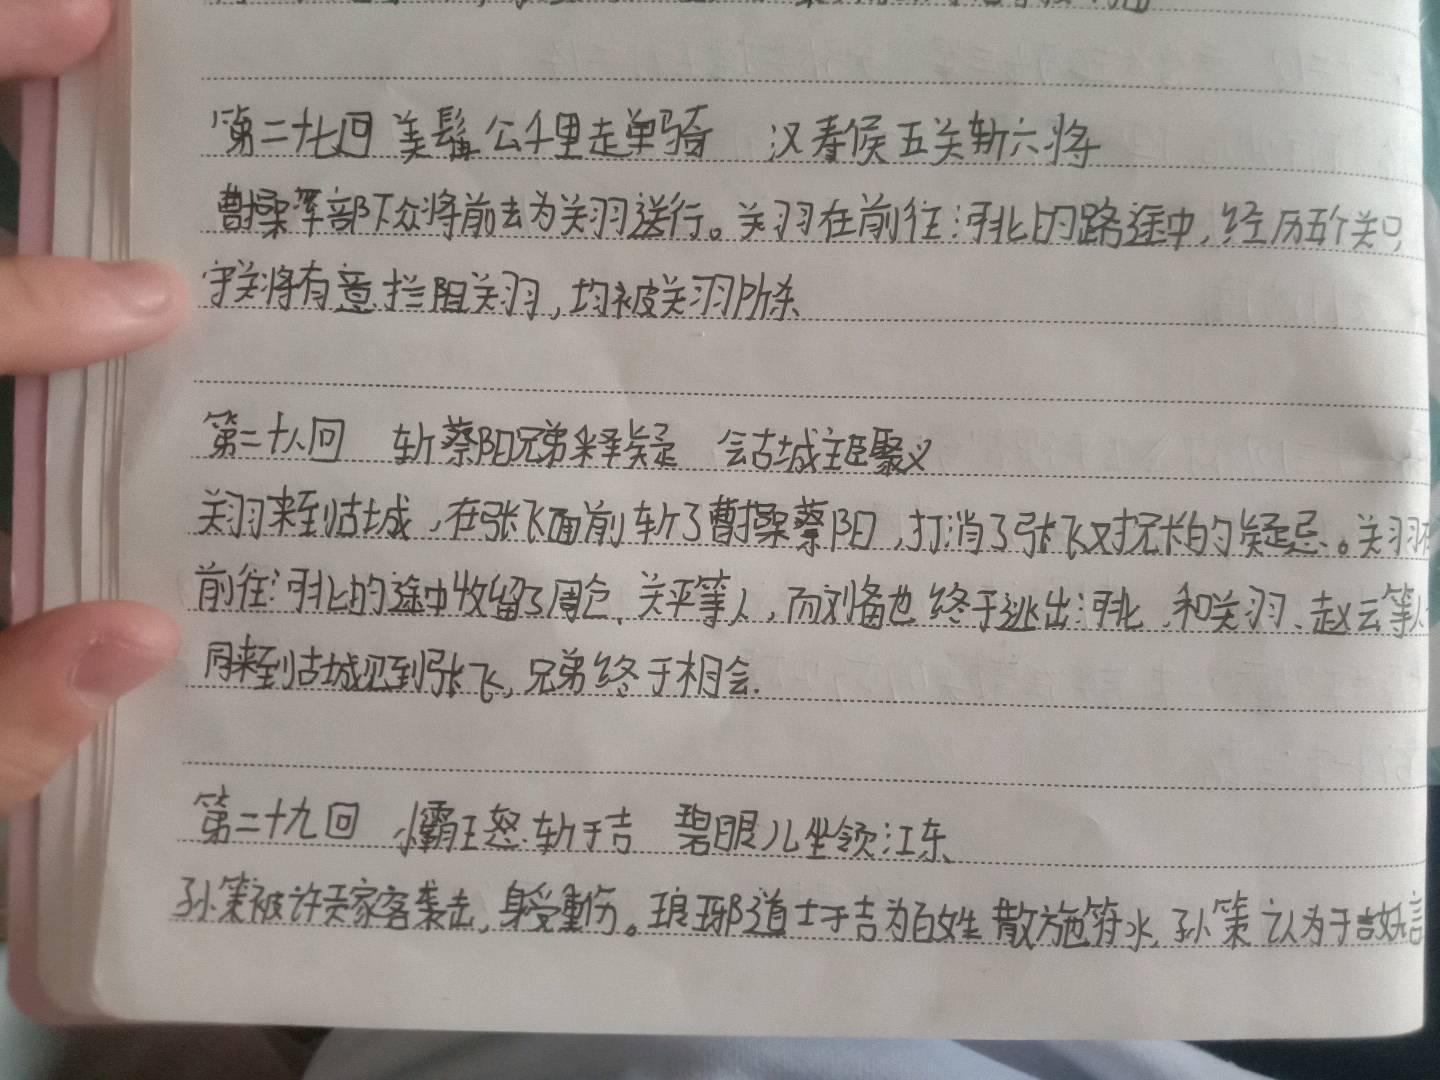 第二十七回 美髯公千里走单骑 汉寿侯五关斩六将
曹操率部下众将前去为关羽送行。关羽在前往河北的路途中,经历五个关口,
守关将有意拦阻关羽,均被关羽所杀
第二十八回 斩蔡阳兄弟释疑 会古城主臣聚义
关羽来到古城,在张飞面前斩了曹操蔡阳,打消了张飞对兄长的疑忌。关羽在
前往河北的途中收留了周仓、关平等人,而刘备也终于逃出河北,和关羽、赵云等人
同来到古城见到张飞,兄弟终于相会.
第二十九回 小霸王怒斩于吉 碧眼儿坐领江东
孙策被许贡家客袭击,身受重伤。琅琊道士于吉为百姓散施符水,孙策认为于吉妖言